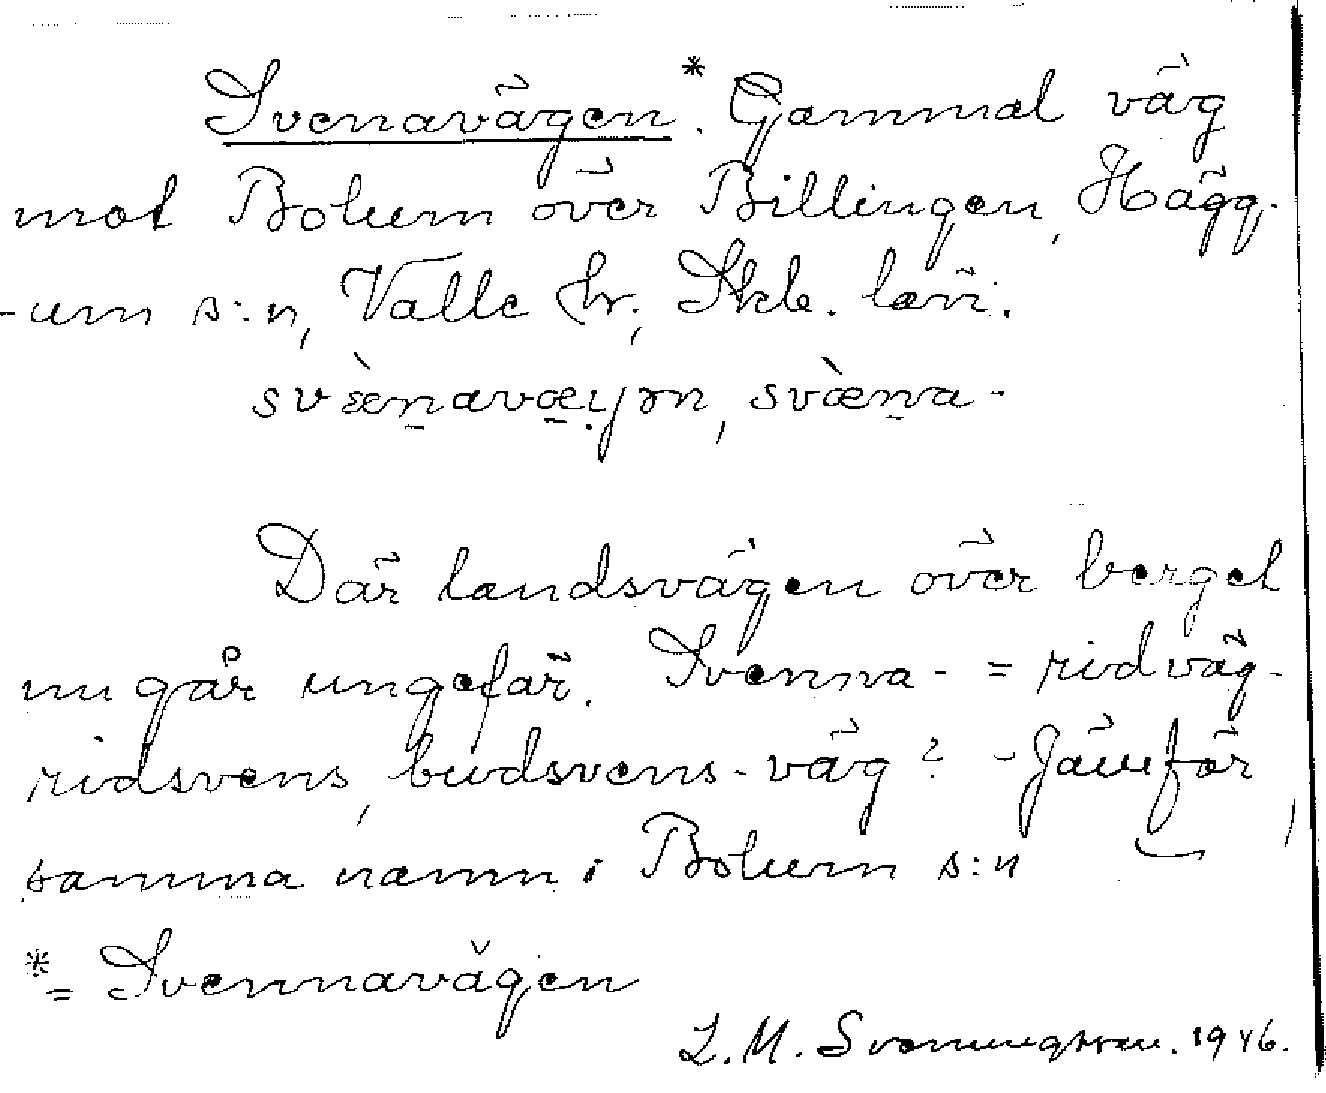 Svenavägen*. Gammal väg
mot Bolum över Billingen, Hägg-
-um s:n, Valle hr, Skb. län.
svæ̀n̠avæ̠i̯ən, svæ̀n̠a-
Där landsvägen över berget
nu går ungefär. Svenna- = ridväg-
ridsvens, budsvens-väg? - Jämför
samma namn i Bolum s:n
*= Svennavägen
L. M. Svenungsson. 1946.